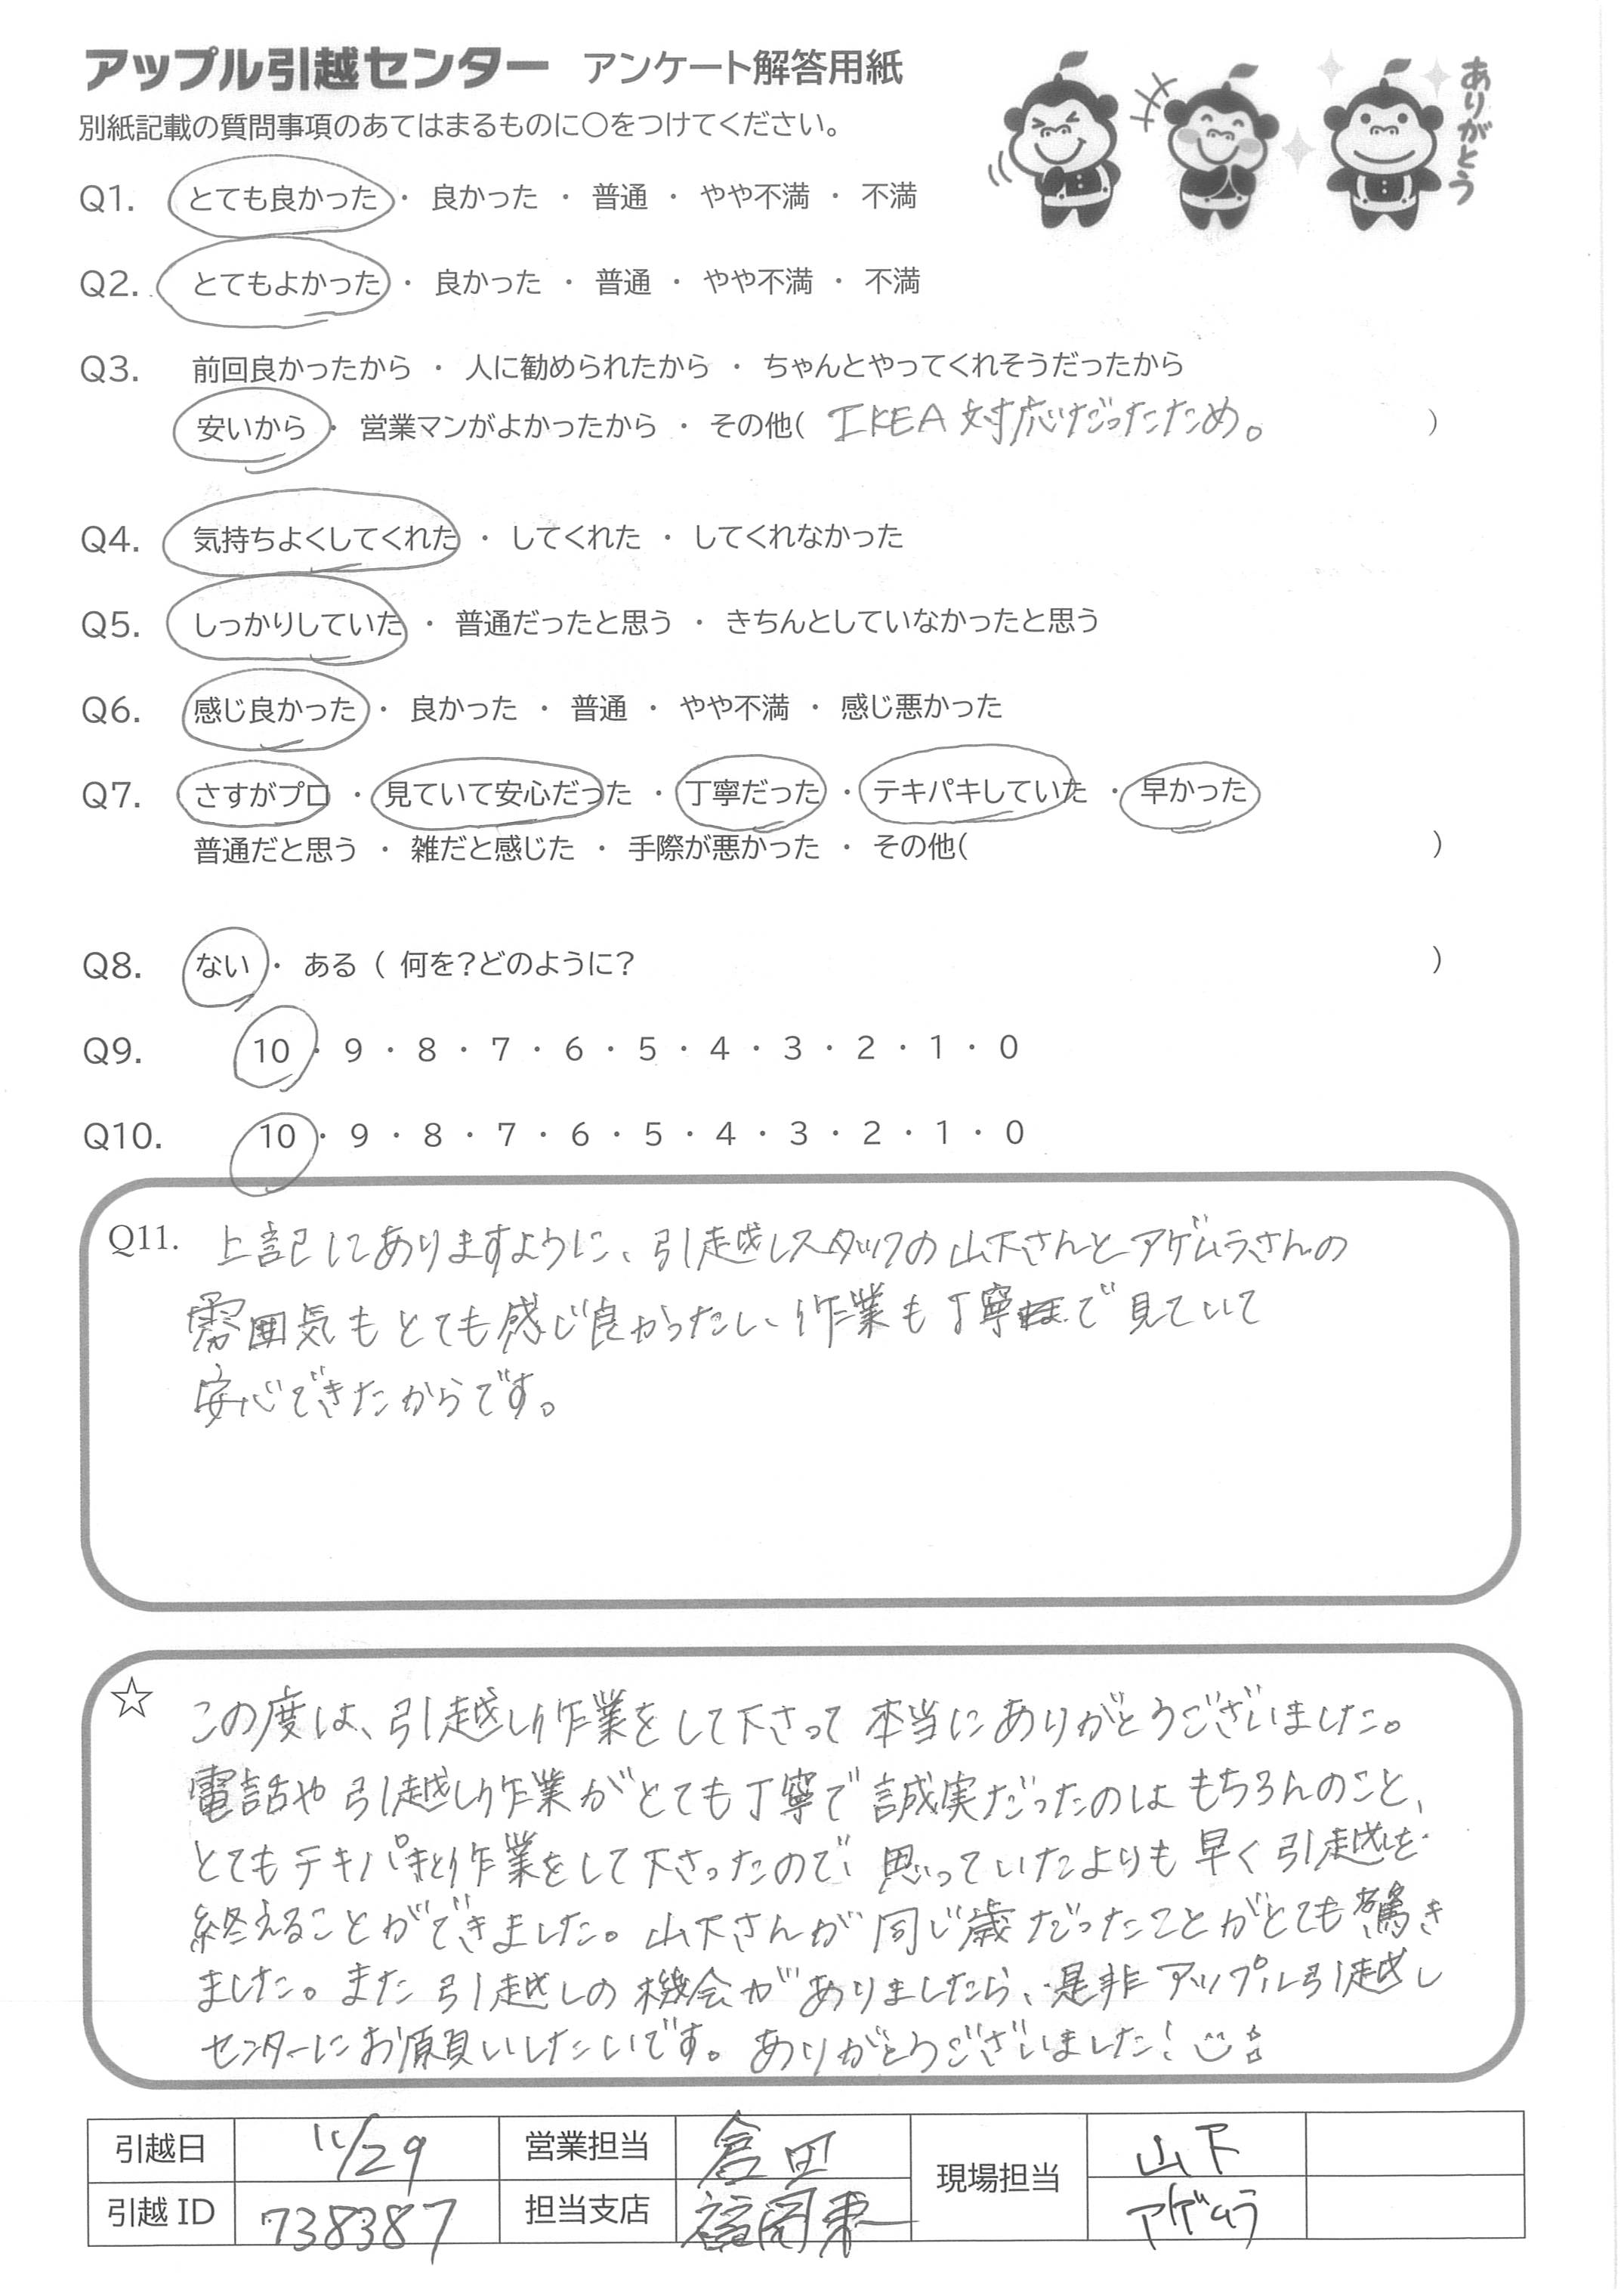 アップル引越センター アンケート解答用紙
ありがとう
別紙記載の質問事項のあてはまるものに○をつけてください。
Q1. とても良かった ・ 良かった ・ 普通 ・ やや不満 ・ 不満
Q2. とてもよかった ・ 良かった ・ 普通 ・ やや不満 ・ 不満
Q3. 前回良かったから ・ 人に勧められたから ・ ちゃんとやってくれそうだったから
安いから ・ 営業マンがよかったから ・ その他( IKEA対応だったため。 )
Q4. 気持ちよくしてくれた ・ してくれた ・ してくれなかった
Q5. しっかりしていた ・ 普通だったと思う ・ きちんとしていなかったと思う
Q6. 感じ良かった ・ 良かった ・ 普通 ・ やや不満 ・ 感じ悪かった
Q7. さすがプロ ・ 見ていて安心だった ・ 丁寧だった ・ テキパキしていた ・ 早かった
普通だと思う ・ 雑だと感じた ・ 手際が悪かった ・ その他( )
Q8. ない ・ ある ( 何を?どのように? )
Q9. 10 ・ 9 ・ 8 ・ 7 ・ 6 ・ 5 ・ 4 ・ 3 ・ 2 ・ 1 ・ 0
Q10. 10 ・ 9 ・ 8 ・ 7 ・ 6 ・ 5 ・ 4 ・ 3 ・ 2 ・ 1 ・ 0
Q11. 上記にありますように、引越しスタッフの山下さんとアゲムラさんの
雰囲気もとても感じ良かったし、作業も丁寧で見ていて
安心できたからです。
☆ この度は、引越し作業をして下さって本当にありがとうございました。
電話や引越し作業がとても丁寧で誠実だったのはもちろんのこと、
とてもテキパキと作業をして下さったので、思っていたよりも早く引越しを
終えることができました。山下さんが同じ歳だったことがとても驚き
ました。また引越しの機会がありましたら、是非アップル引越し
センターにお願いしたいです。ありがとうございました!
引越日 11/29 営業担当 倉田 現場担当 山下
引越ID 738387 担当支店 福岡東 アゲムラ